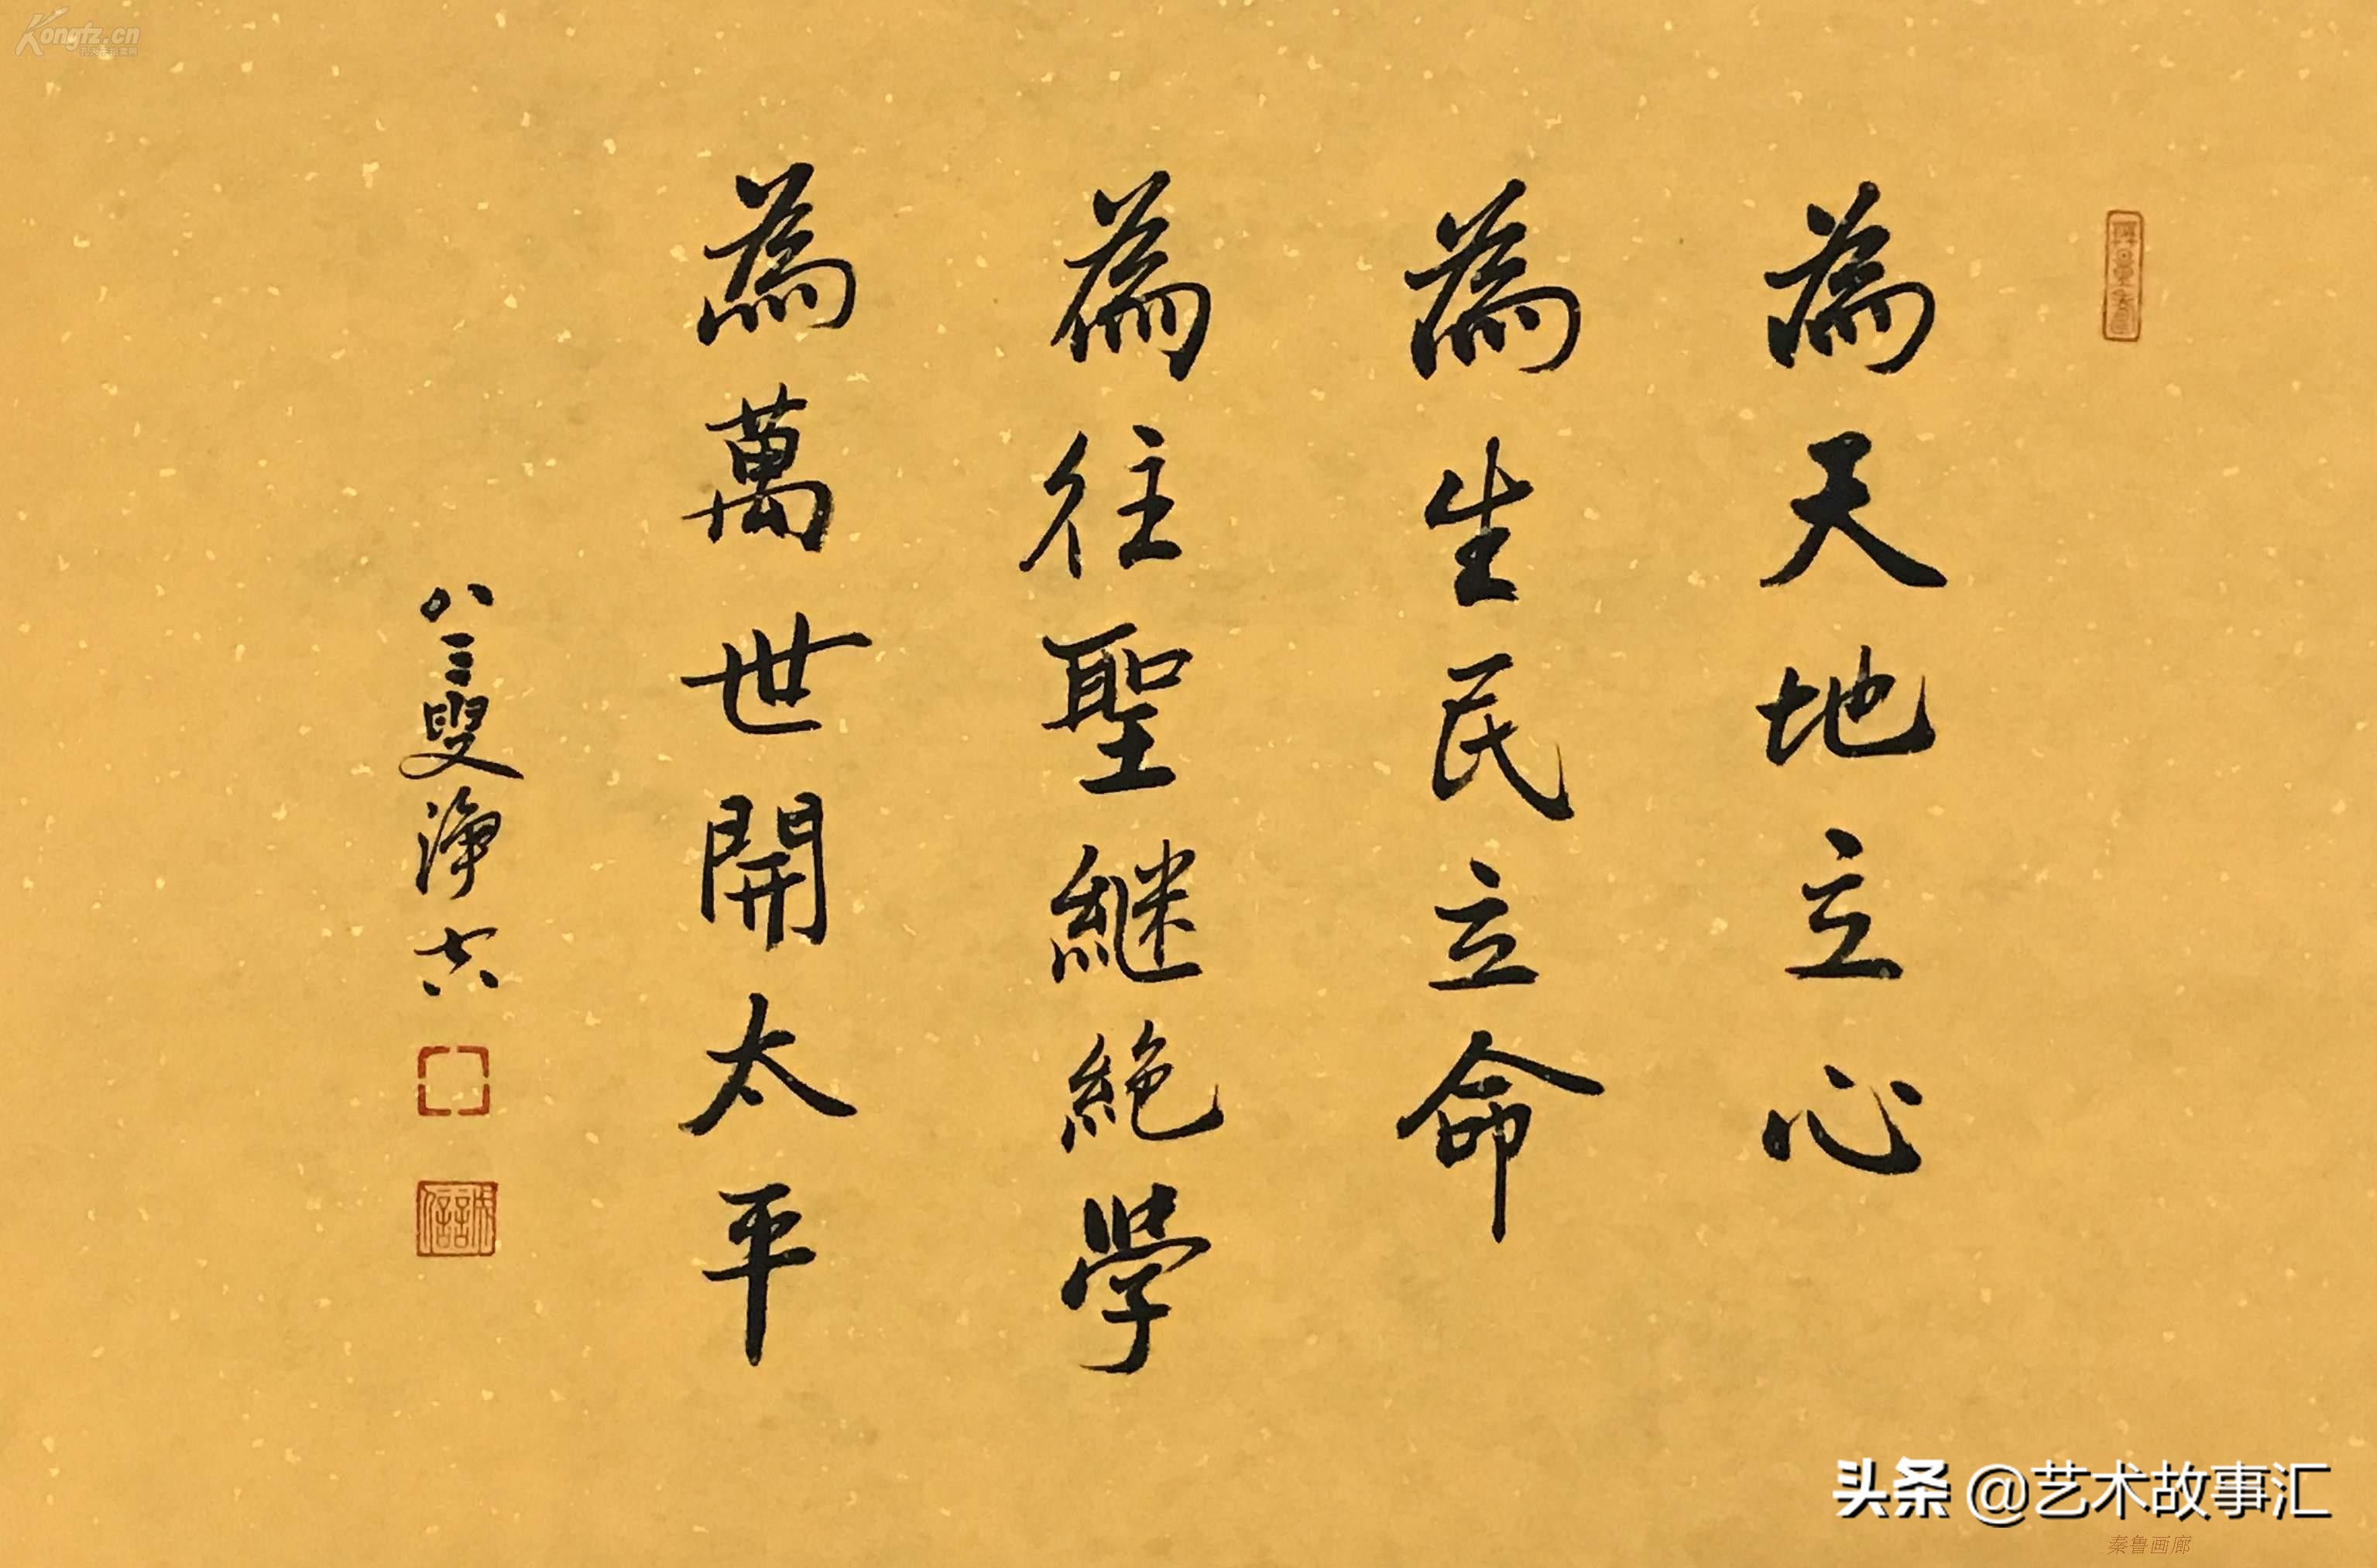 為天地立心
為生民立命
為往聖継絶學
為萬世開太平
八三叟淨空
Kongfz.cn
头条 @艺术故事汇
秦鲁画廊